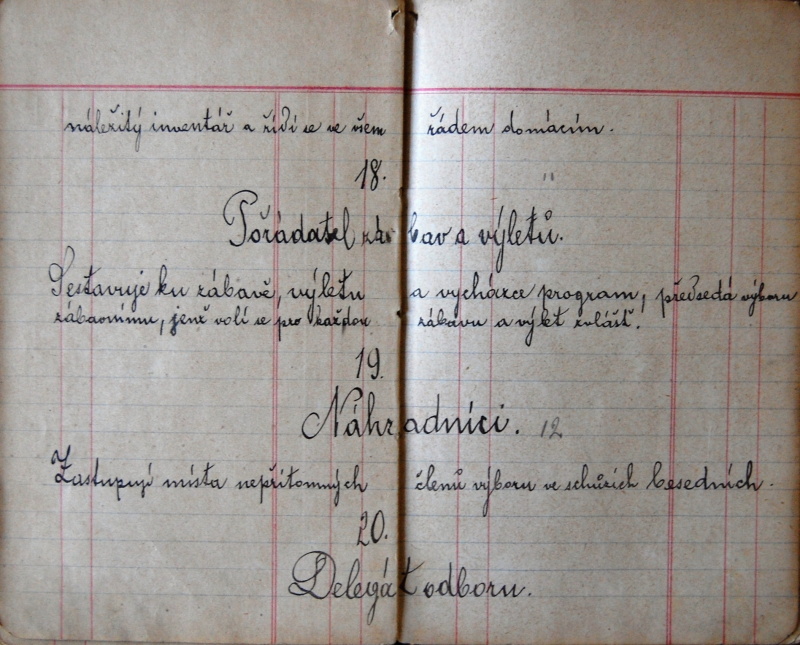 náležitý inventář a řídí se ve všem řádem domácím.
18. "
Pořádatel zábav a výletů.
Sestavuje ku zábavě, výletu a vycházce program, předsedá výboru
zábavnímu, jenž volí se pro každou zábavu a výlet zvlášť.
19.
Náhradníci. 12
Zastupují místa nepřítomných členů výboru ve schůzích besedních.
20.
Delegát odboru.